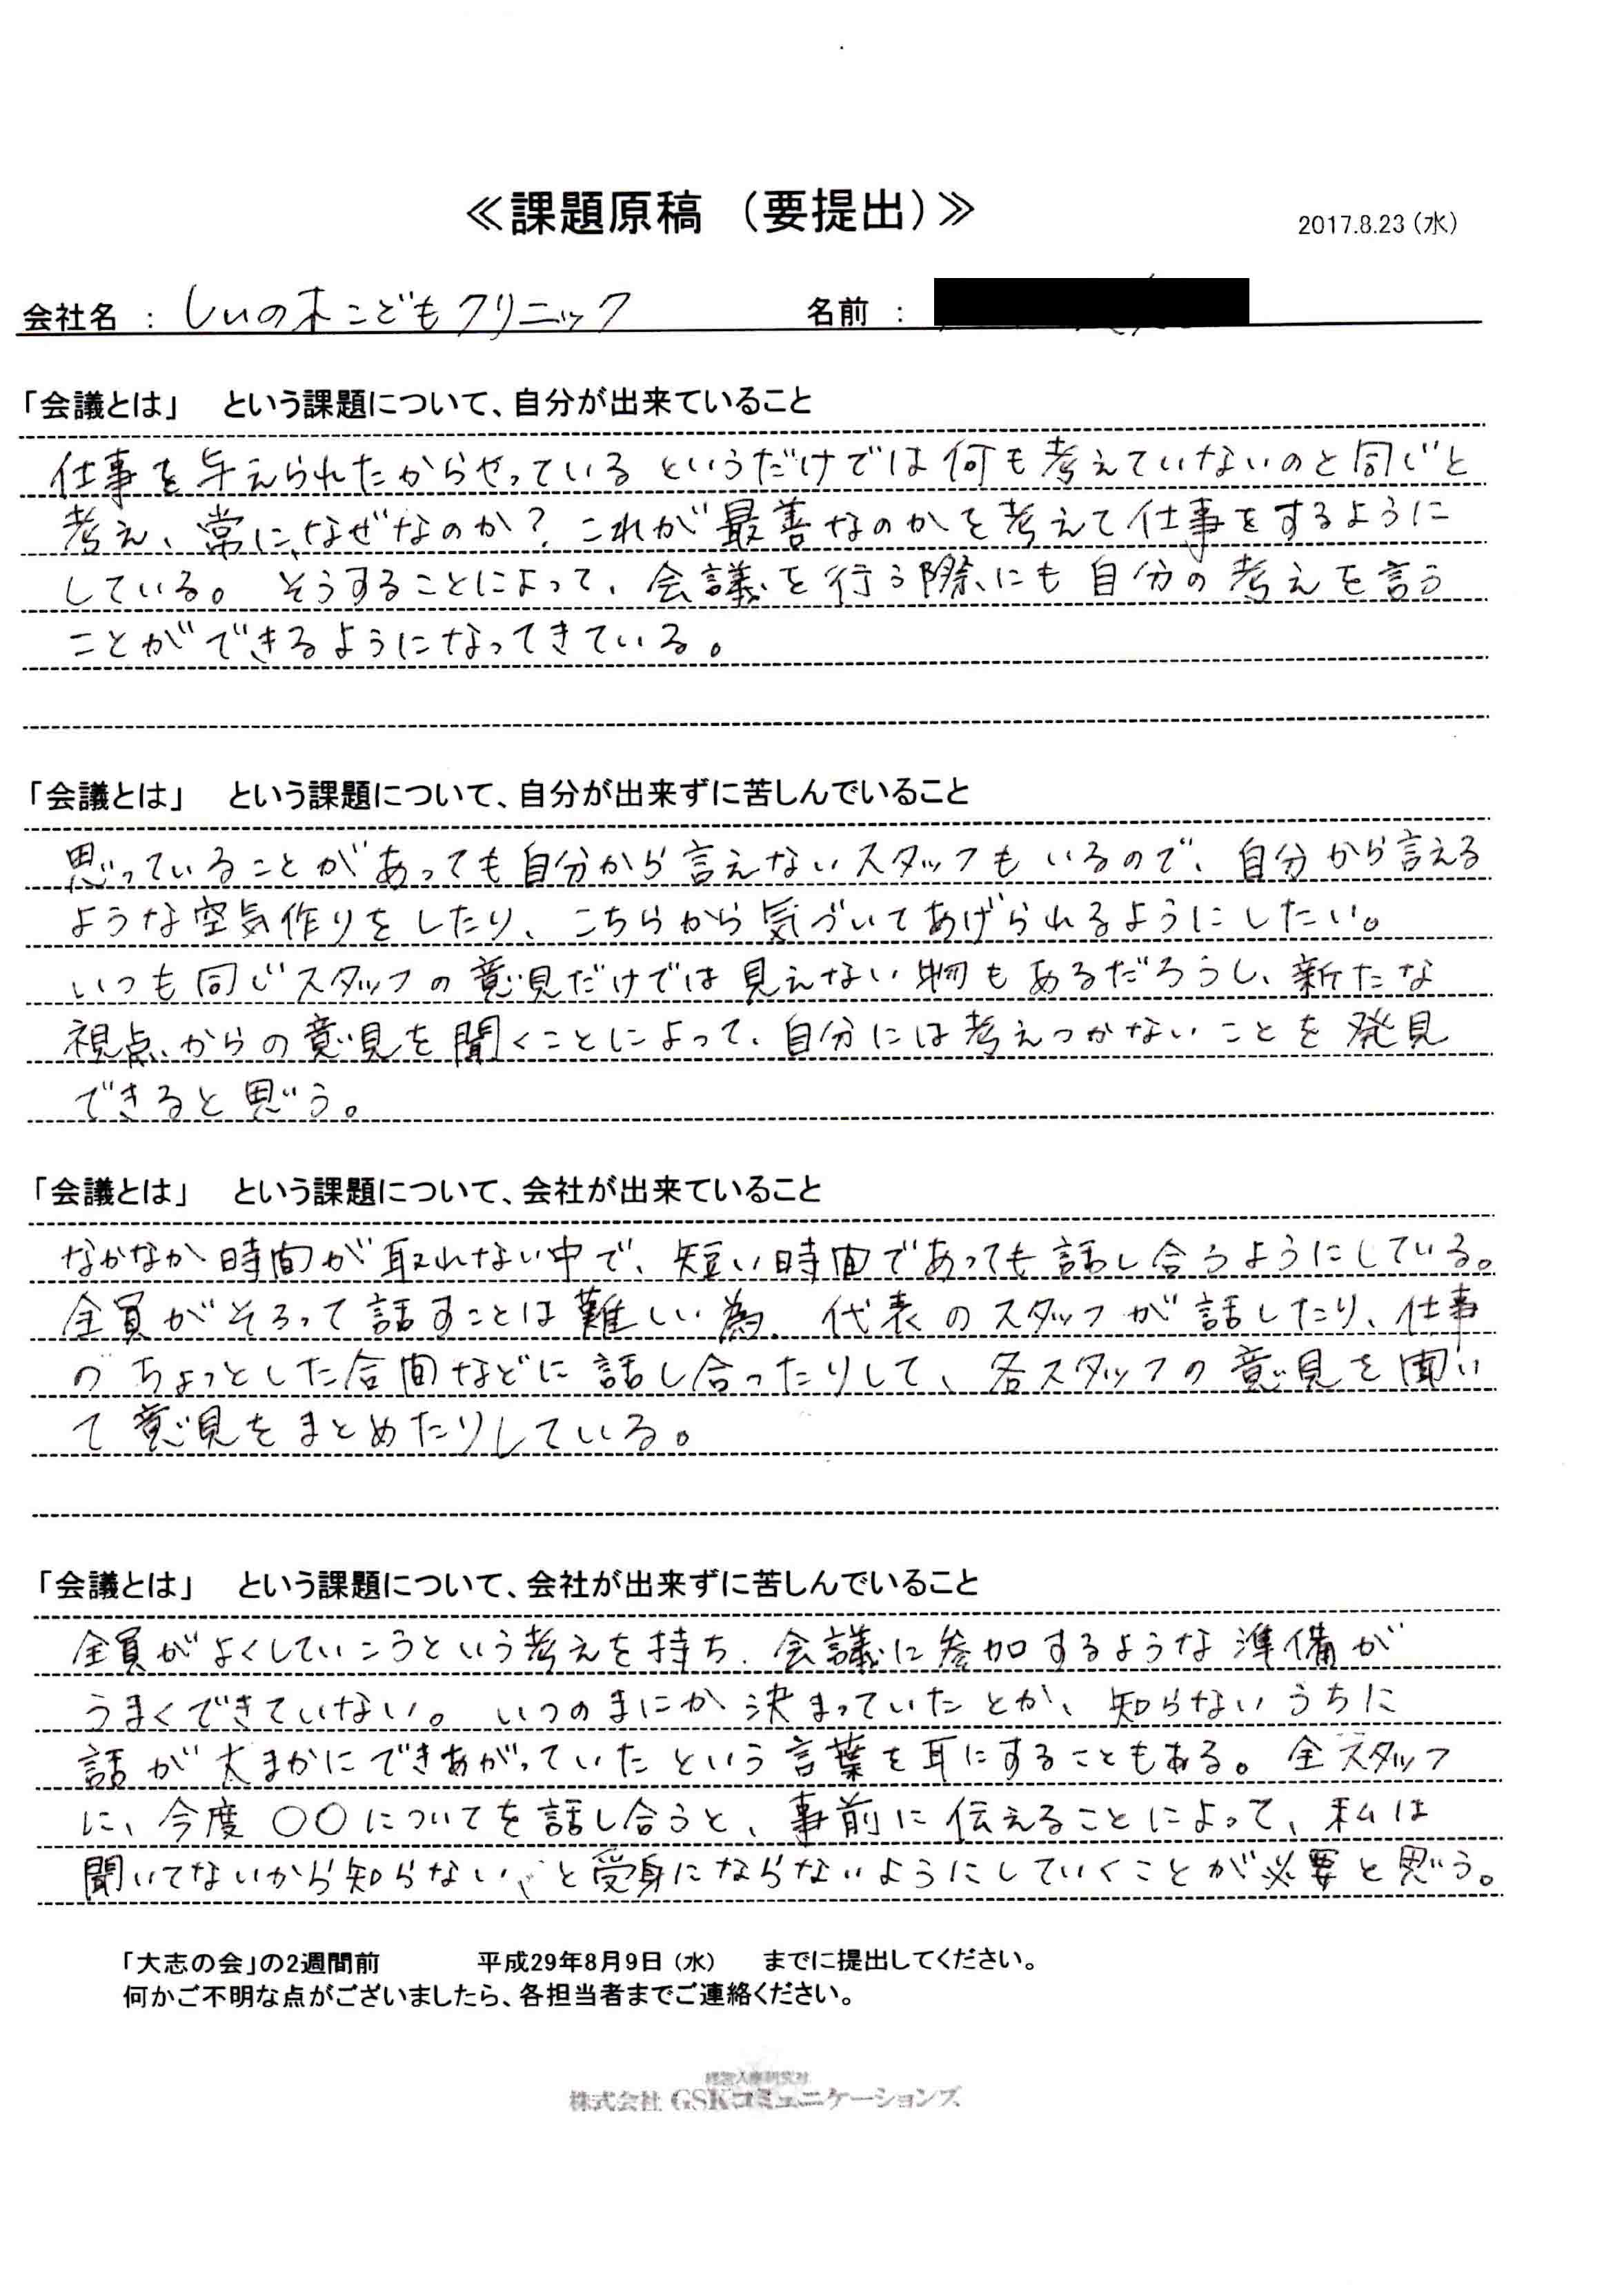 ≪課題原稿（要提出）≫
2017.8.23（水）
会社名 ： しいの木こどもクリニック 名前 ：
「会議とは」 という課題について、自分が出来ていること
仕事を与えられたからやっているというだけでは何も考えていないのと同じと
考え、常に、なぜなのか？これが最善なのかを考えて仕事をするように
している。そうすることによって、会議を行う際にも自分の考えを言う
ことができるようになってきている。
「会議とは」 という課題について、自分が出来ずに苦しんでいること
思っていることがあっても自分から言えないスタッフもいるので、自分から言える
ような空気作りをしたり、こちらから気づいてあげられるようにしたい。
いつも同じスタッフの意見だけでは見えない物もあるだろうし、新たな
視点からの意見を聞くことによって、自分には考えつかないことを発見
できると思う。
「会議とは」 という課題について、会社が出来ていること
なかなか時間が取れない中で、短い時間であっても話し合うようにしている。
全員がそろって話すことは難しい為、代表のスタッフが話したり、仕事
のちょっとした合間などに話し合ったりして、各スタッフの意見を聞い
て意見をまとめたりしている。
「会議とは」 という課題について、会社が出来ずに苦しんでいること
全員がよくしていこうという考えを持ち、会議に参加するような準備が
うまくできていない。いつのまにか決まっていたとか、知らないうちに
話が大まかにできあがっていたという言葉を耳にすることもある。全スタッフ
に、今度〇〇についてを話し合うと、事前に伝えることによって、私は
聞いてないから知らない、と受身にならないようにしていくことが必要と思う。
「大志の会」の2週間前 平成29年8月9日（水） までに提出してください。
何かご不明な点がございましたら、各担当者までご連絡ください。
株式会社 GSKコミュニケーションズ